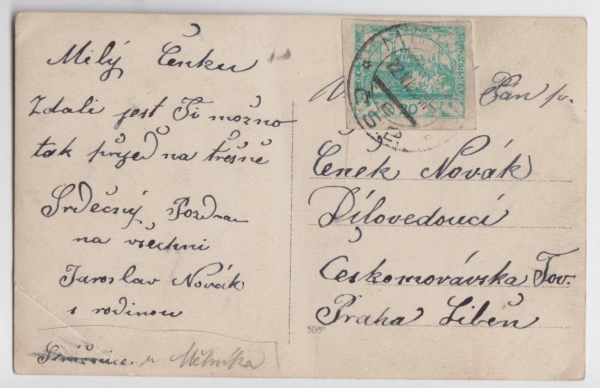 Milý Čenku
Zdali jest Ti možno
tak přijeď na třešně
Srdečný Pozdrav
na všechni
Jaroslav Novák
s rodinou
u Mělníka
Pan p.
Čeněk Novák
Dílovedoucí
Českomorávska Tov.
Praha Libeň